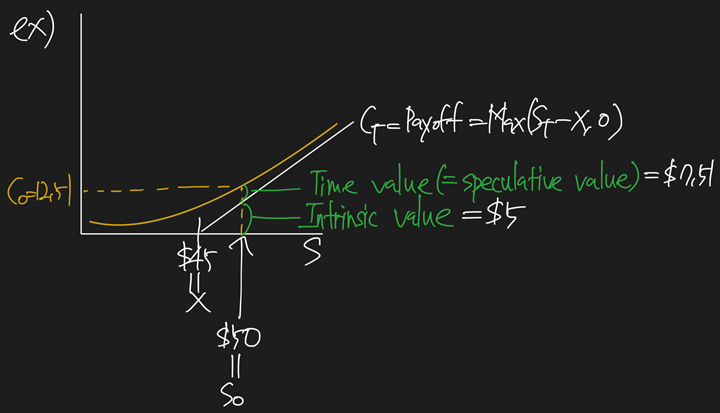 ex)
C_T = Payoff = Max(S_T - X, 0)
C_0 = 12.51
Time value (= speculative value) = $7.51
Intrinsic value = $5
$45
S
||
X
$50
||
S_0